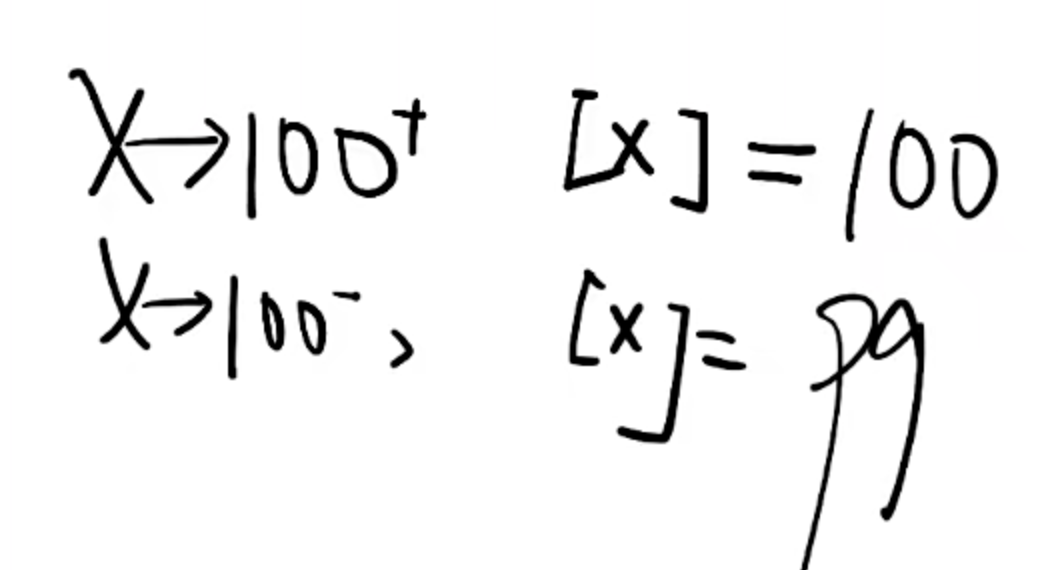 X→100⁺ [x]=100
X→100⁻, [x]=99